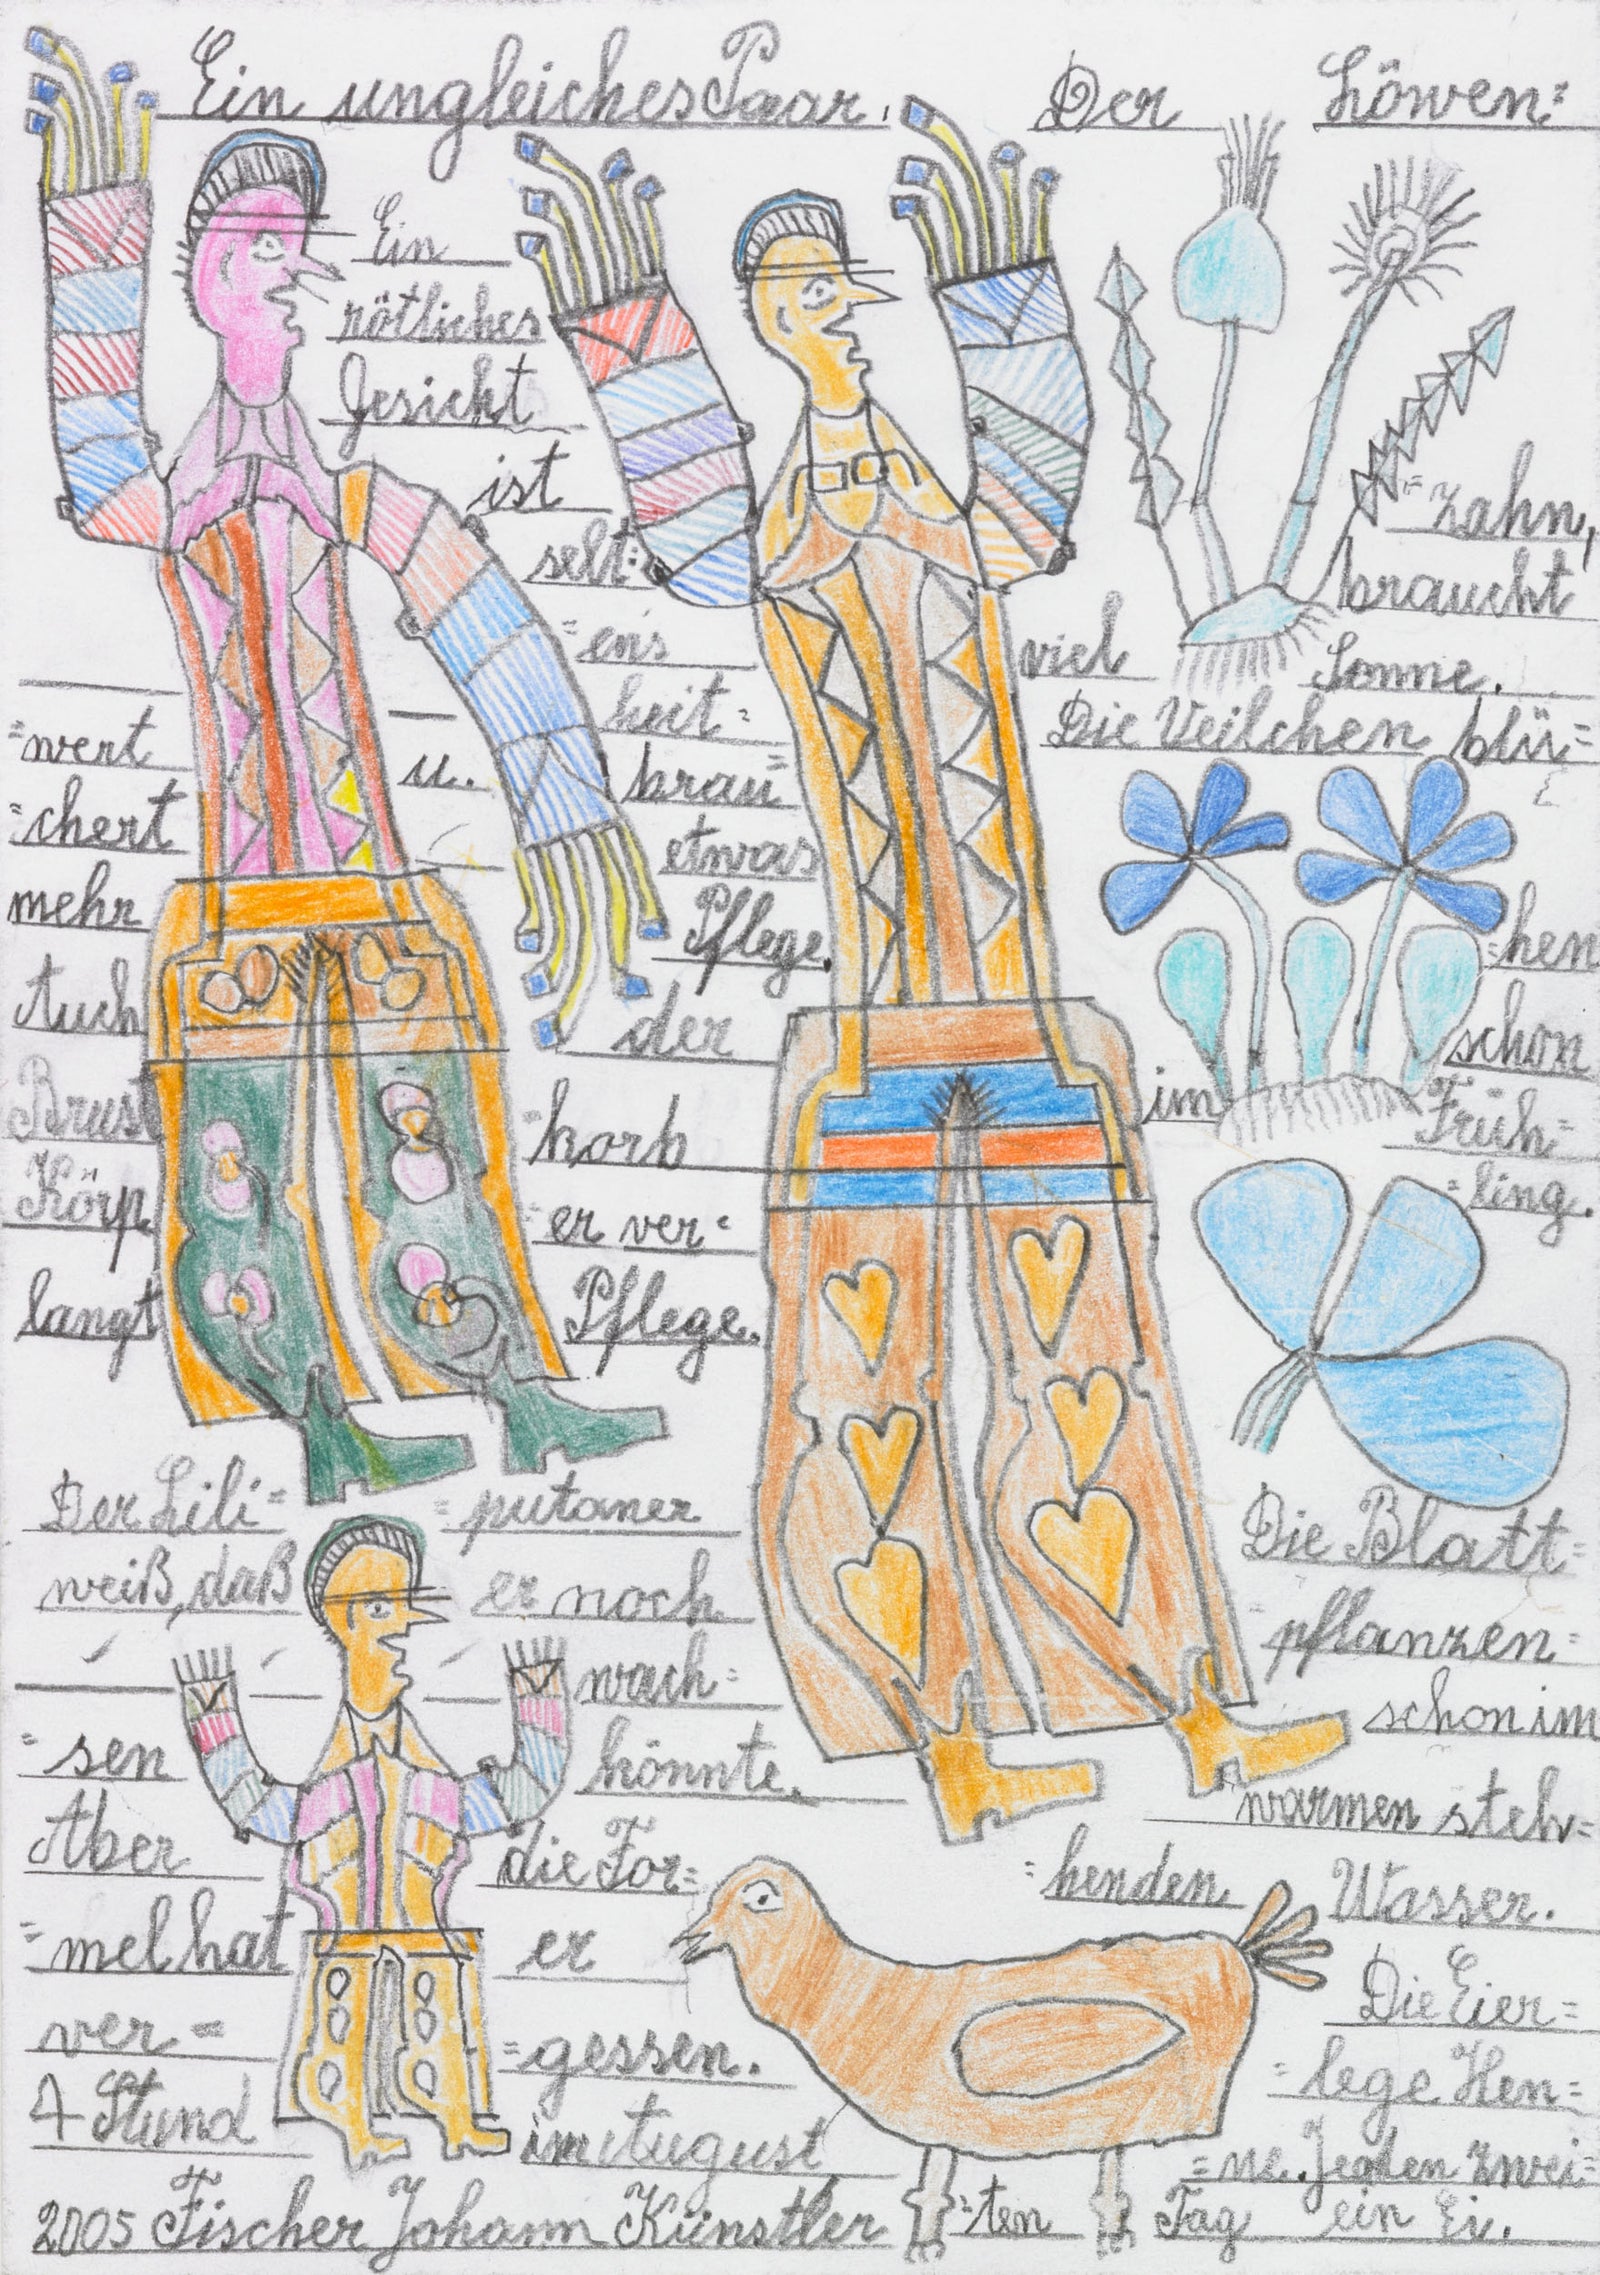 Ein ungleiches Paar.
Ein
rötliches
Gesicht
ist
selt=
=ens
heit=
=wert u. brau=
=chert etwas
mehr Pflege.
Auch der
Brust =korb
Körp =er ver=
langt Pflege.
Der Lili= =putaner
weiß, daß er noch
wach=
=sen könnte.
Aber die For=
=mel hat er
ver= =gessen.
4 Stund im August
2005 Fischer Johann Künstler
Der Löwen=
=zahn,
braucht
viel Sonne.
Die Veilchen blü=
=hen
schon
im Früh=
=ling.
Die Blatt=
=pflanzen=
schon im
warmen steh=
=henden Wasser.
Die Eier=
=lege Hen=
=ne. Jeden zwei=
=ten Tag ein Ei.